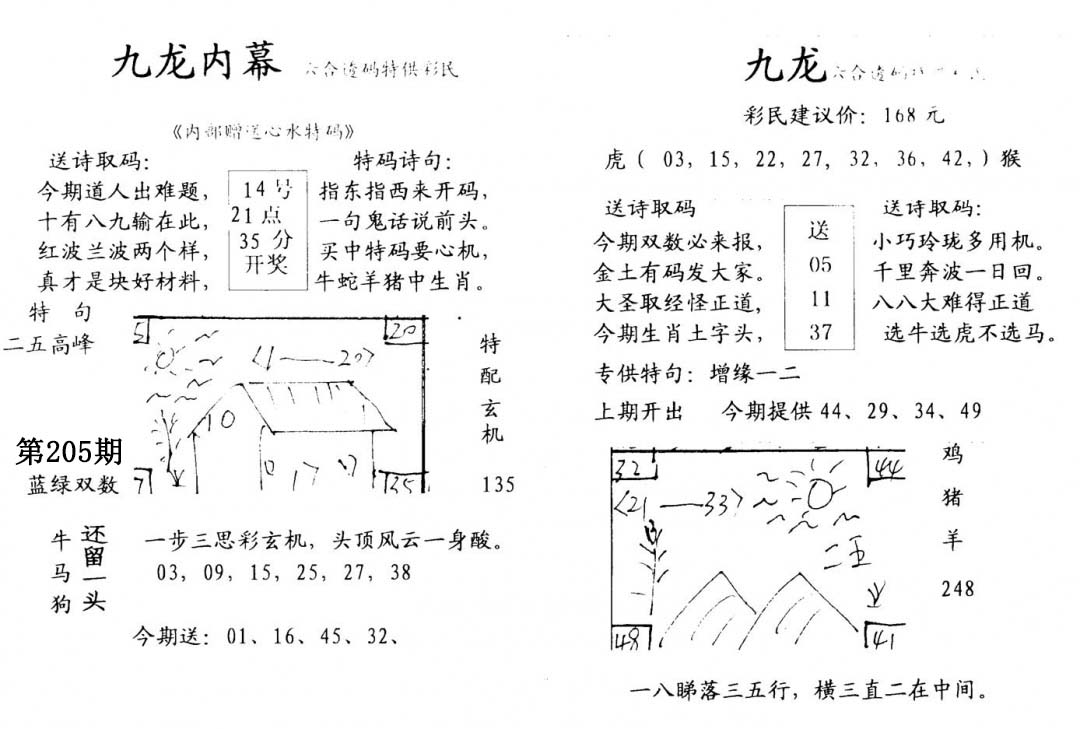 九龙内幕 六合透码特供彩民
《内部赠送心水特码》
送诗取码：
今期道人出难题，
十有八九输在此，
红波兰波两个样，
真才是块好材料，
14号
21点
35 分
开奖
特码诗句：
指东指西来开码，
一句鬼话说前头。
买中特码要心机，
牛蛇羊猪中生肖。
特 句
二五高峰
第205期
蓝绿双数
5
20
<1——20>
10
17
7
35
特
配
玄
机
135
牛
马
狗
还
留
一
头
一步三思彩玄机，头顶风云一身酸。
03，09，15，25，27，38
今期送：01、16、45、32、
九龙 六合透码
彩民建议价：168元
虎（ 03，15，22，27，32，36，42，）猴
送诗取码
今期双数必来报，
金土有码发大家。
大圣取经怪正道，
今期生肖土字头，
送
05
11
37
送诗取码：
小巧玲珑多用机。
千里奔波一日回。
八八大难得正道
选牛选虎不选马。
专供特句：增缘一二
上期开出 今期提供44、29、34、49
32
44
<21——33>
二五
48
41
鸡
猪
羊
248
一八睇落三五行，横三直二在中间。